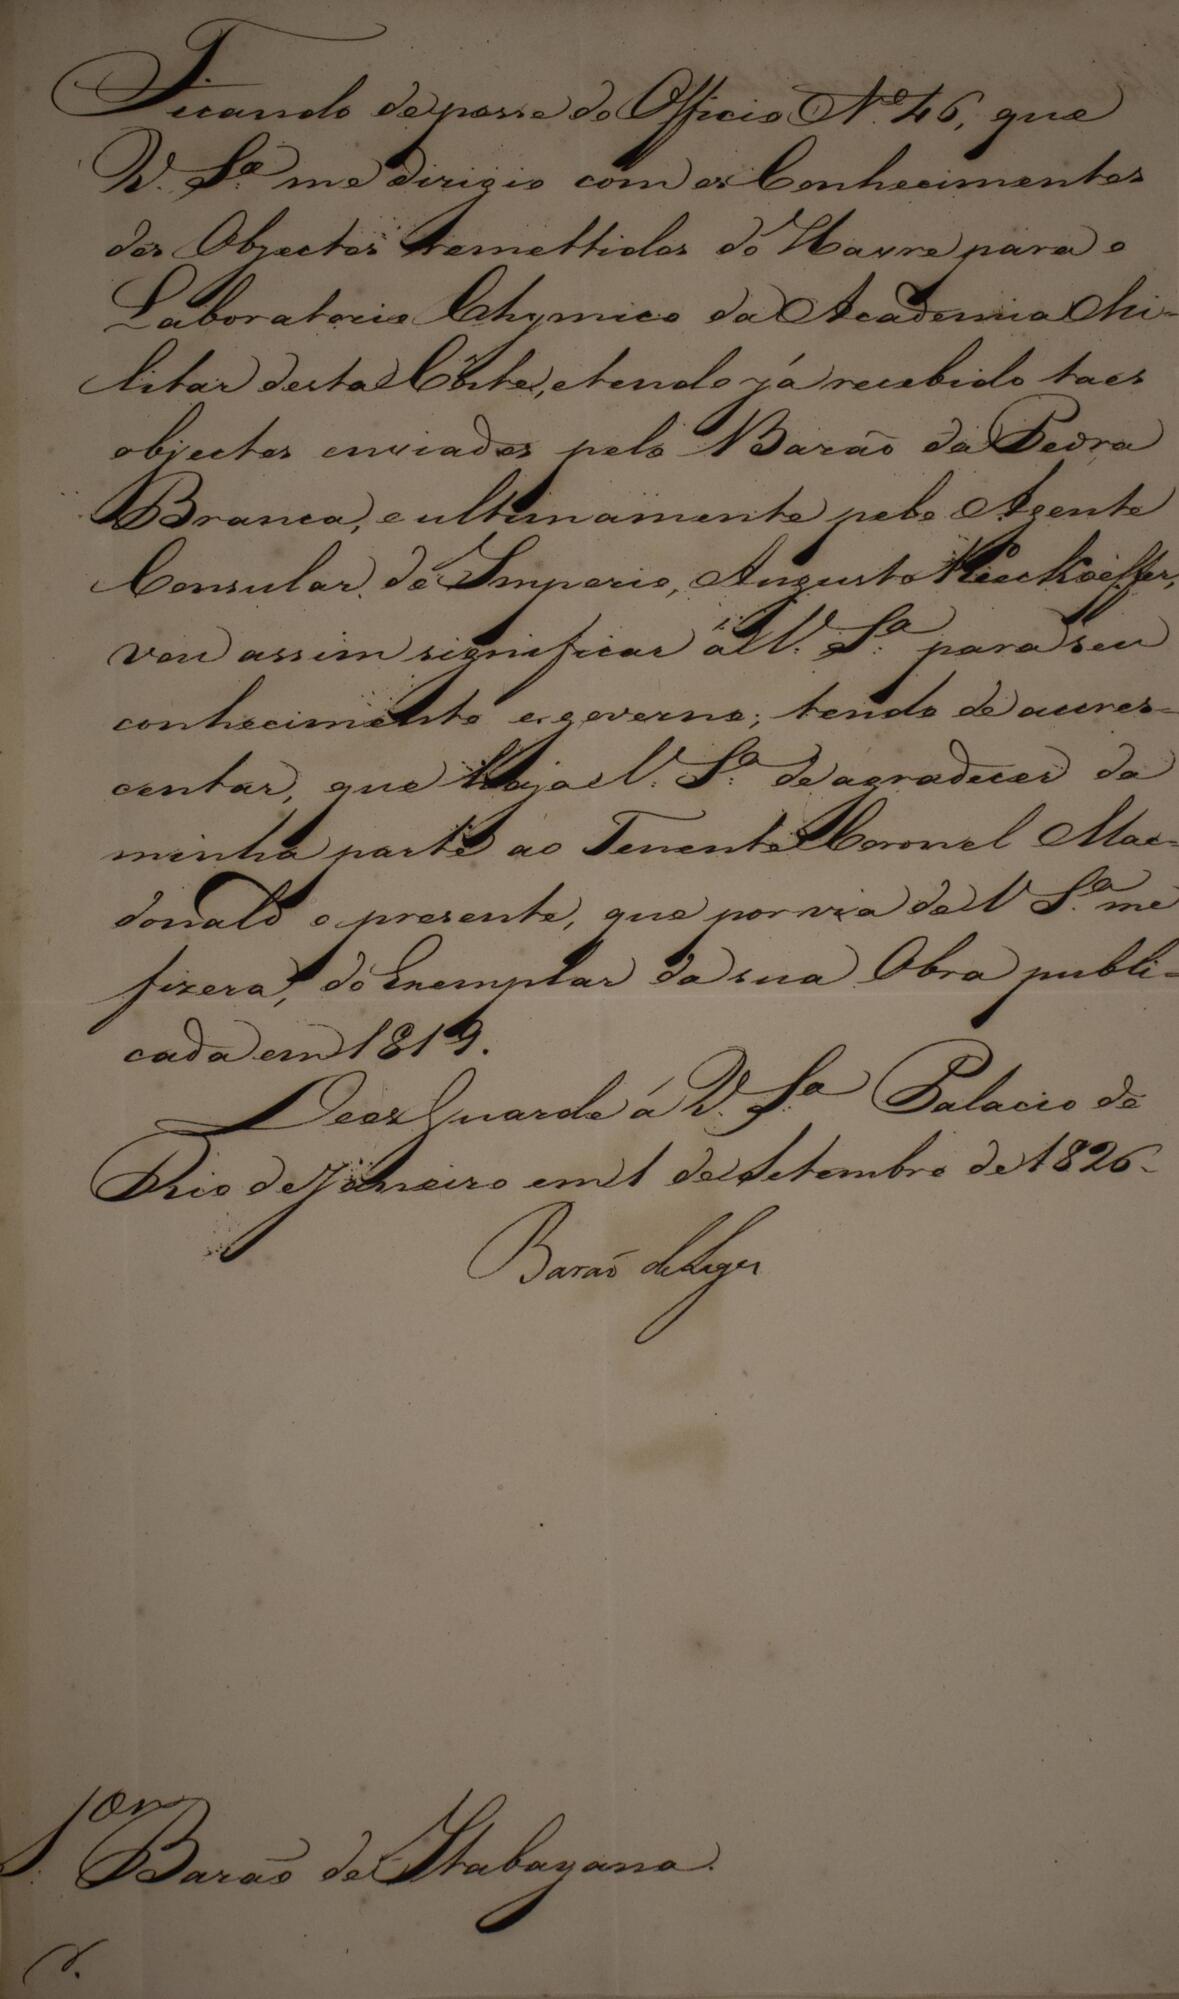 Ficando de posse do Officio N.º 46, que
V. S.ª me dirigio com os Conhecimentos
dos Objectos remettidos do Havre para o
Laboratorio Chymico da Academia Mi-
litar desta Côrte, e tendo já recebido taes
objectos enviados pelo Barão da Pedra
Branca, e ultimamente pelo Agente
Consular do Imperio, Augusto
vou assim significar á V. S.ª para seu
conhecimento e governo; tendo de acres-
centar, que haja V. S.ª de agradecer da
minha parte ao Tenente Coronel Mac-
donald o presente, que por via de V S.ª me
fizera, do Exemplar da sua Obra publi-
cada em 1819.
Deos Guarde á V. S.ª Palacio do
Rio de Janeiro em 1 de Setembro de 1826.
Barão de
S.ºr Barão de Itabayana.